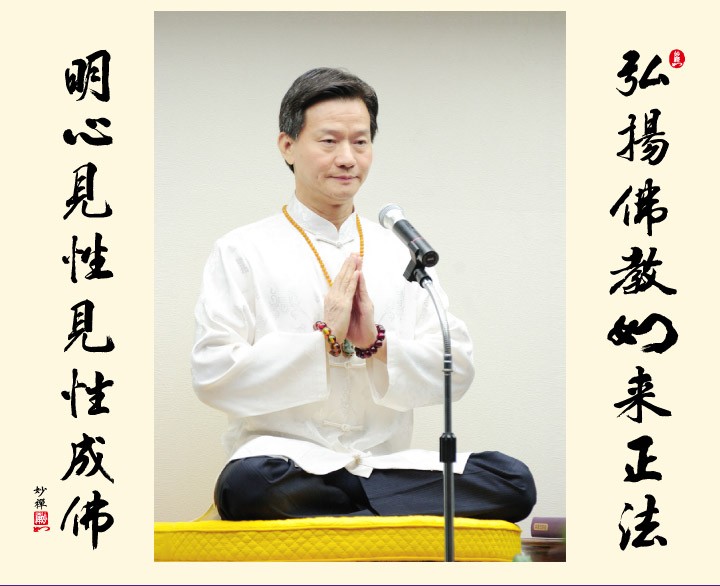 弘揚佛教如来正法
明心見性見性成佛
妙禪